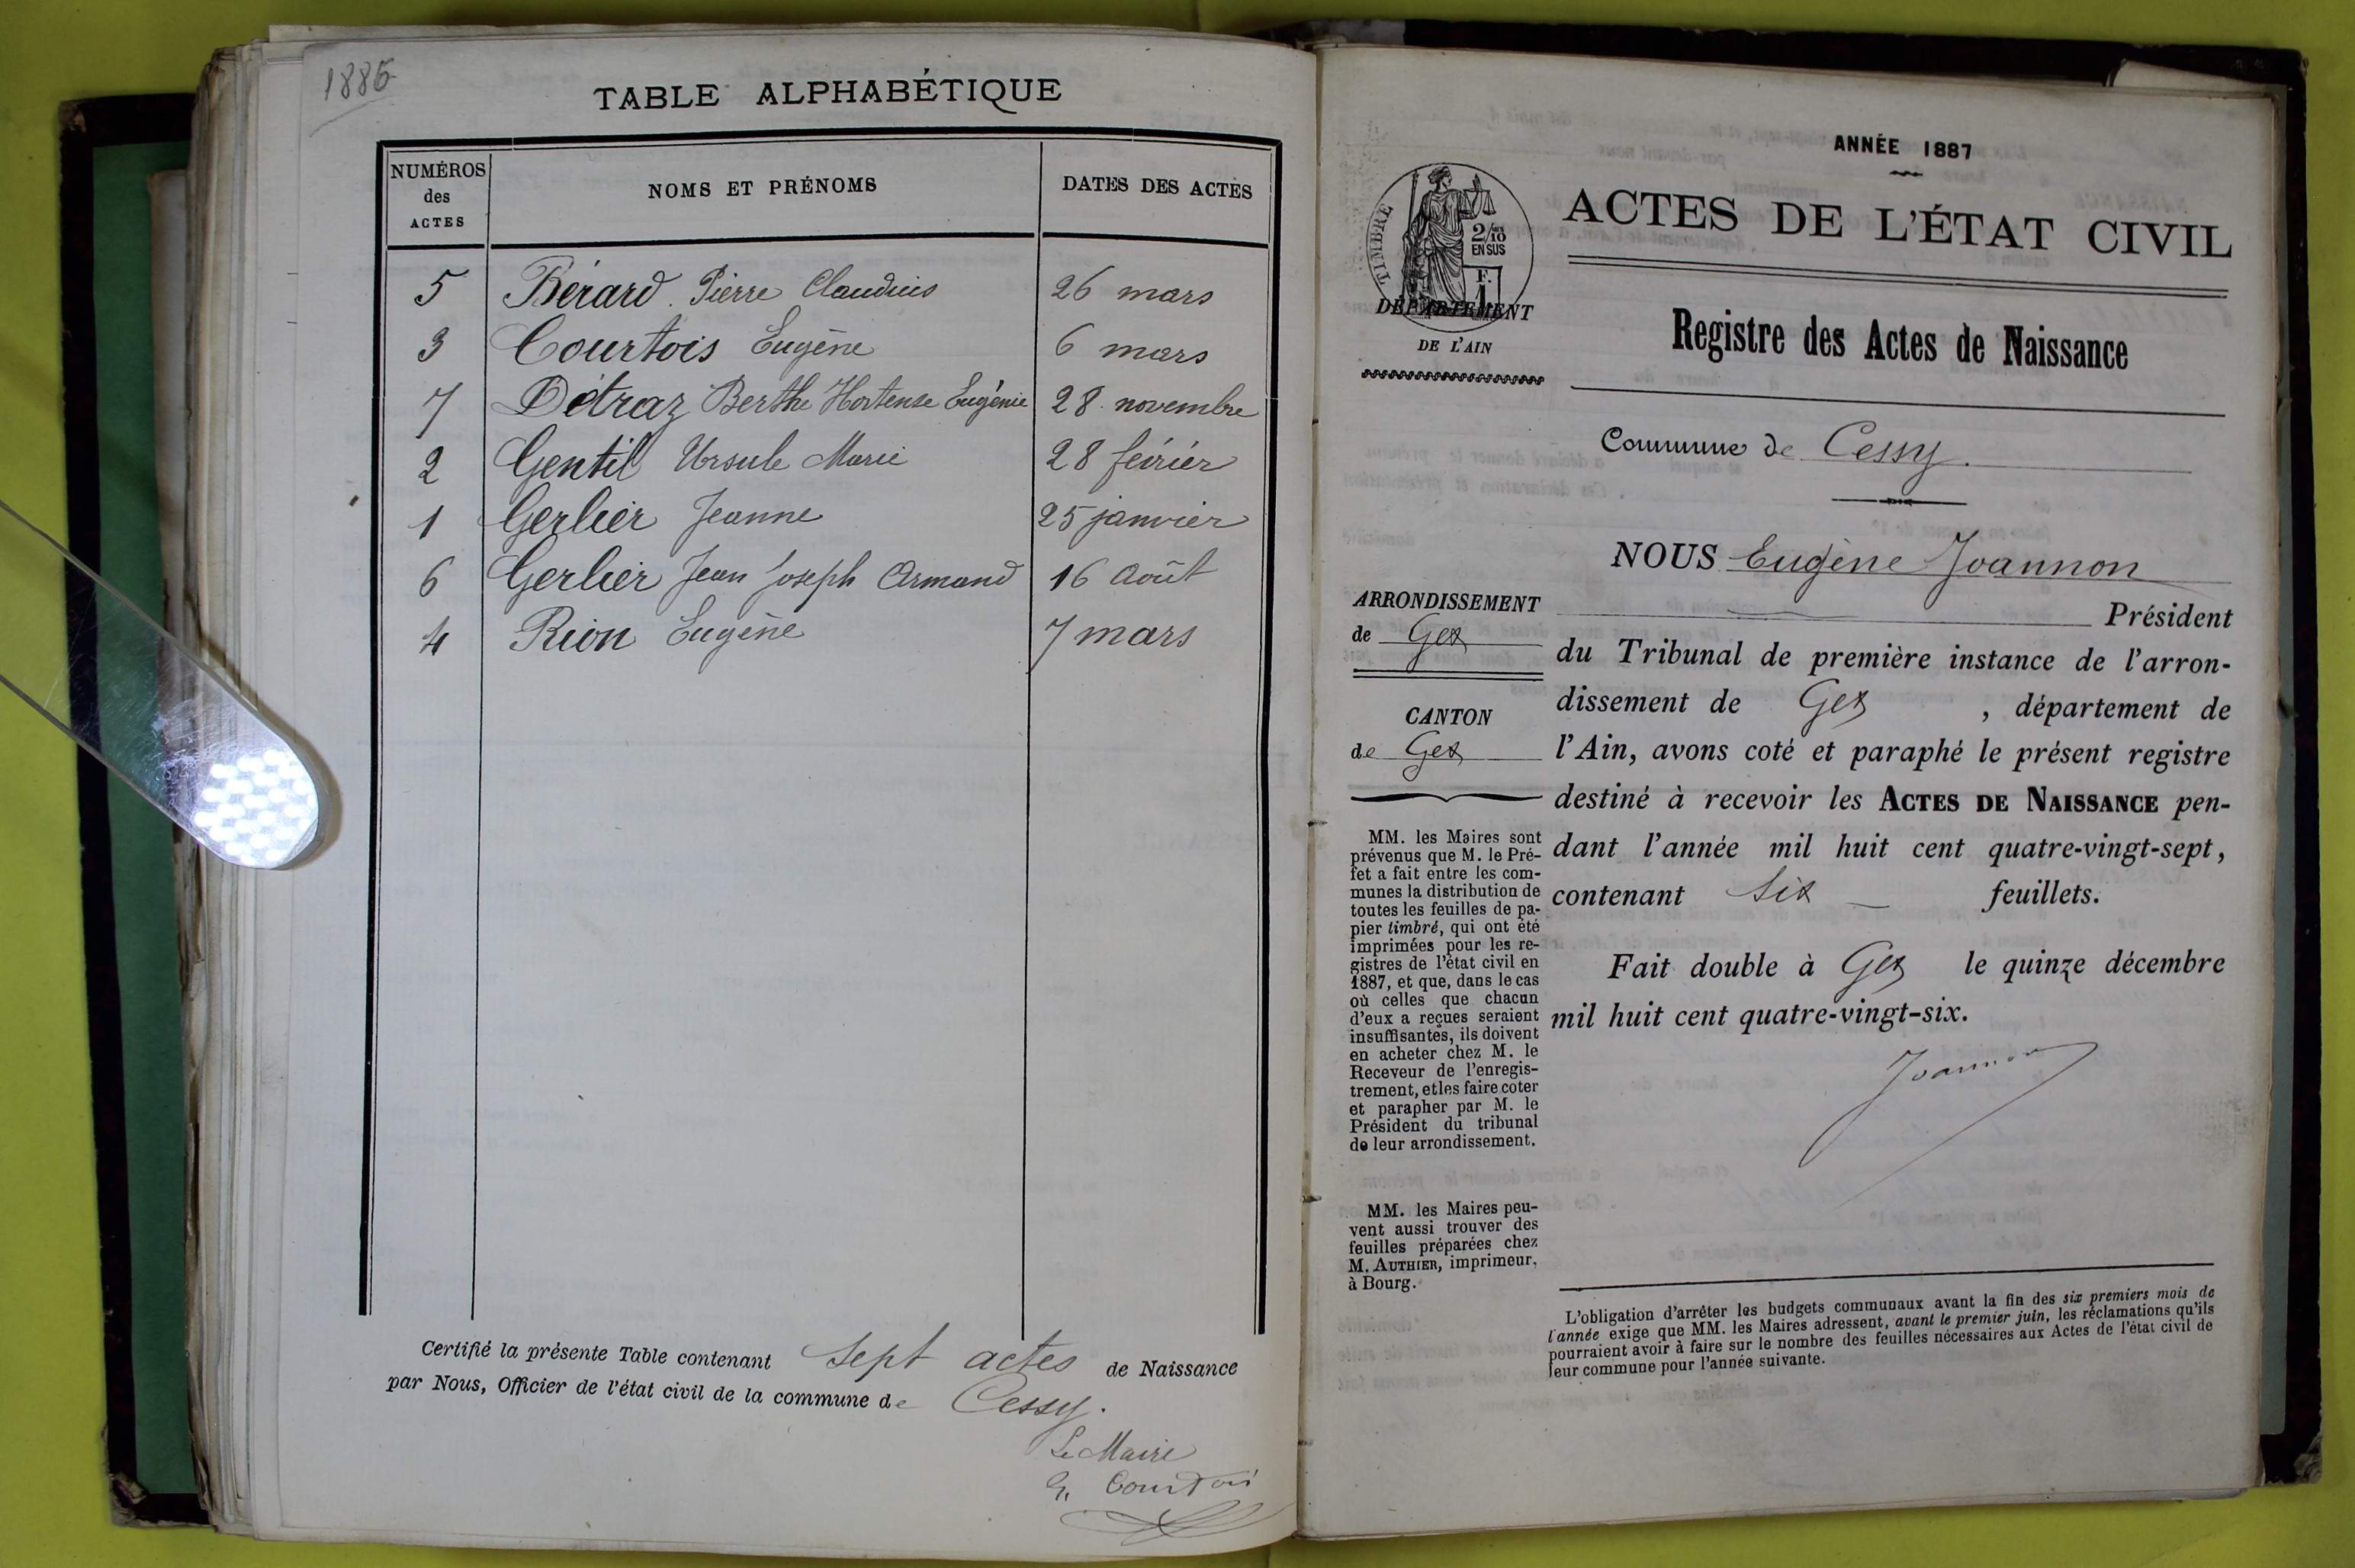 1886
TABLE ALPHABÉTIQUE
NUMÉROS
des
ACTES
NOMS ET PRÉNOMS
DATES DES ACTES
5 Bérard Pierre Claudius 26 mars
3 Courtois Eugène 6 mars
7 Détraz Berthe Hortense Eugénie 28 novembre
2 Gentil Ursule Marie 28 février
1 Gerlier Jeanne 25 janvier
6 Gerlier Jean Joseph Armand 16 Août
4 Rion Eugène 7 mars
Certifié la présente Table contenant Sept actes de Naissance
par Nous, Officier de l'état civil de la commune de Cessy.
Le Maire
Courtois
ANNÉE 1887
ACTES DE L'ÉTAT CIVIL
TIMBRE
2/10
EN SUS
F.
1
DÉPARTEMENT
DE L'AIN
Registre des Actes de Naissance
Commune de Cessy.
ARRONDISSEMENT
de Gex
CANTON
de Gex
MM. les Maires sont
prévenus que M. le Pré-
fet a fait entre les com-
munes la distribution de
toutes les feuilles de pa-
pier timbré, qui ont été
imprimées pour les re-
gistres de l'état civil en
1887, et que, dans le cas
où celles que chacun
d'eux a reçues seraient
insuffisantes, ils doivent
en acheter chez M. le
Receveur de l'enregis-
trement, et les faire coter
et parapher par M. le
Président du tribunal
de leur arrondissement.
MM. les Maires peu-
vent aussi trouver des
feuilles préparées chez
M. AUTHIER, imprimeur,
à Bourg.
NOUS Eugène Joannon
Président
du Tribunal de première instance de l'arron-
dissement de Gex, département de
l'Ain, avons coté et paraphé le présent registre
destiné à recevoir les ACTES DE NAISSANCE pen-
dant l'année mil huit cent quatre-vingt-sept,
contenant Six feuillets.
Fait double à Gex le quinze décembre
mil huit cent quatre-vingt-six.
Joannon
L'obligation d'arrêter les budgets communaux avant la fin des six premiers mois de
l'année exige que MM. les Maires adressent, avant le premier juin, les réclamations qu'ils
pourraient avoir à faire sur le nombre des feuilles nécessaires aux Actes de l'état civil de
leur commune pour l'année suivante.